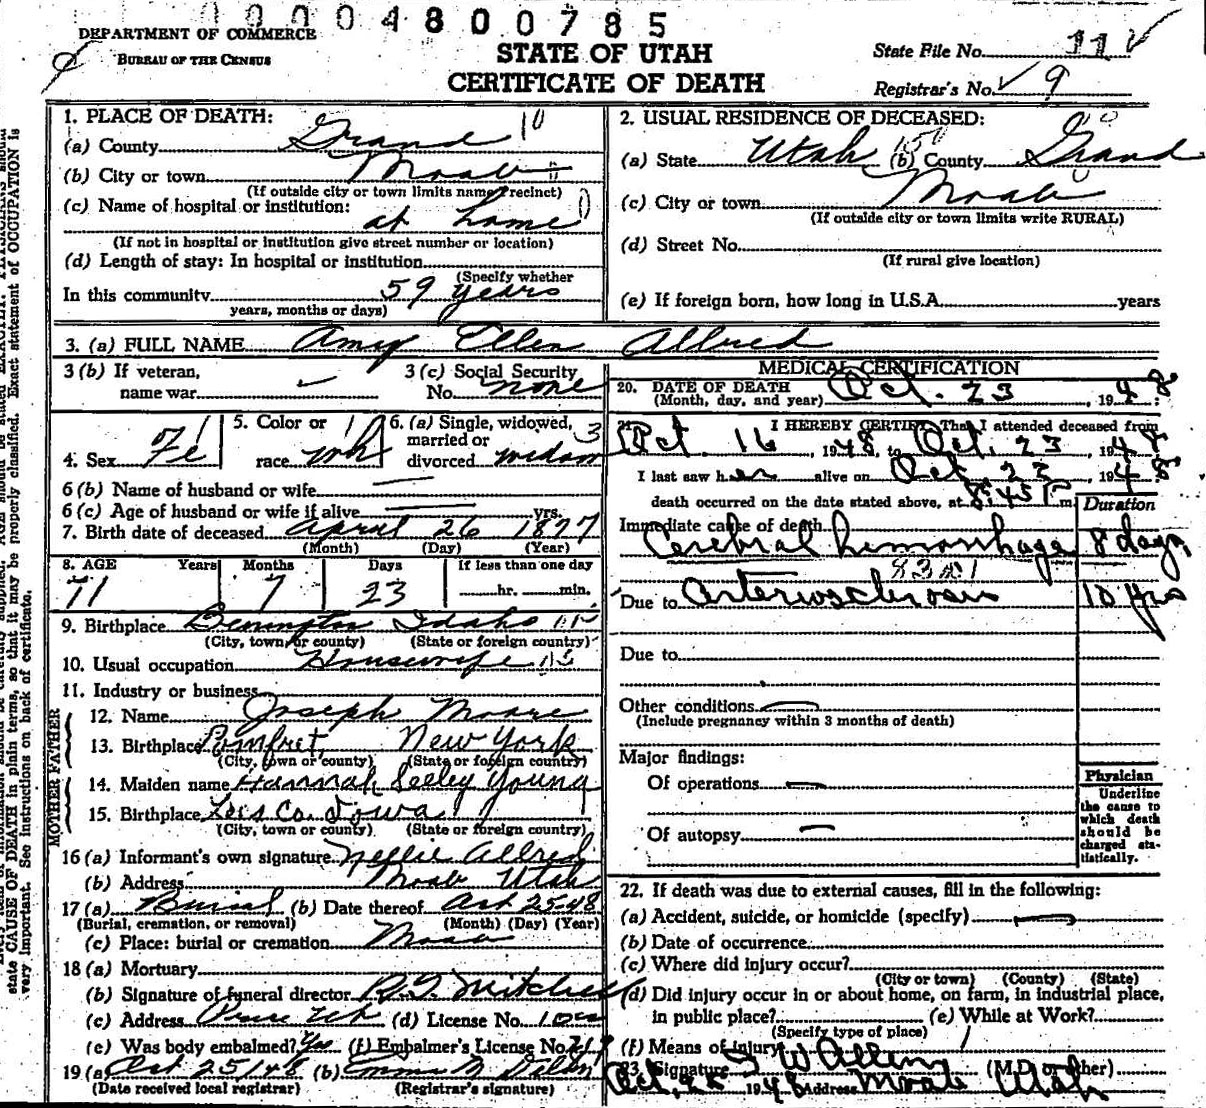 0000480 0785
DEPARTMENT OF COMMERCE
BUREAU OF THE CENSUS
STATE OF UTAH
CERTIFICATE OF DEATH
State File No. 11
Registrar's No. 9
1. PLACE OF DEATH:
(a) County Grand 10
(b) City or town Moab
(If outside city or town limits name Precinct)
(c) Name of hospital or institution:
at home
(If not in hospital or institution give street number or location)
(d) Length of stay: In hospital or institution
(Specify whether
In this community 59 years
years, months or days)
2. USUAL RESIDENCE OF DECEASED:
(a) State Utah (b) County Grand
(c) City or town Moab
(If outside city or town limits write RURAL)
(d) Street No.
(If rural give location)
(e) If foreign born, how long in U.S.A. years
3. (a) FULL NAME Amy Ellen Allred
3 (b) If veteran,
name war
3 (c) Social Security
No. none
4. Sex Fe
5. Color or
race wh
6. (a) Single, widowed,
married or
divorced widow
6 (b) Name of husband or wife
6 (c) Age of husband or wife if alive yrs.
7. Birth date of deceased April 26 1877
(Month) (Day) (Year)
8. AGE Years Months Days If less than one day
71 7 23 hr. min.
9. Birthplace Bennington Idaho
(City, town or county) (State or foreign country)
10. Usual occupation Housewife
11. Industry or business
FATHER
12. Name Joseph Moore
13. Birthplace Pomfret, New York
(City, town or county) (State or foreign country)
MOTHER
14. Maiden name Hannah Seeley Young
15. Birthplace Lees Co. Iowa
(City, town or county) (State or foreign country)
16 (a) Informant's own signature Nellie Allred
(b) Address Moab Utah
17 (a) Burial (b) Date thereof Oct 25-48
(Burial, cremation, or removal) (Month) (Day) (Year)
(c) Place: burial or cremation Moab
18 (a) Mortuary
(b) Signature of funeral director Mitchell
(c) Address Ut (d) License No.
(e) Was body embalmed? Yes (f) Embalmer's License No.
19 (a) Oct 25/48 (b) Emma
(Date received local registrar) (Registrar's signature)
MEDICAL CERTIFICATION
20. DATE OF DEATH
(Month, day, and year) Oct. 23, 1948
21. I HEREBY CERTIFY, That I attended deceased from
Oct. 16, 1948, to Oct. 23, 1948
I last saw her alive on Oct. 23 1948
death occurred on the date stated above, at 8:45 P m.
Immediate cause of death Duration
Cerebral hemorrhage 8 days
Due to Arteriosclerosis 10 yrs
Due to
Other conditions
(Include pregnancy within 3 months of death)
Major findings:
Of operations
Of autopsy
Physician
Underline
the cause to
which death
should be
charged sta-
tistically.
22. If death was due to external causes, fill in the following:
(a) Accident, suicide, or homicide (specify)
(b) Date of occurrence
(c) Where did injury occur?
(City or town) (County) (State)
(d) Did injury occur in or about home, on farm, in industrial place,
in public place? (e) While at Work?
(Specify type of place)
(f) Means of injury
23. Signature I W Allen (M.D. or other)
Oct. 1948 Address Moab Utah
state CAUSE OF DEATH in plain terms, so that it may be properly classified. Exact statement of OCCUPATION is
very important. See instructions on back of certificate.